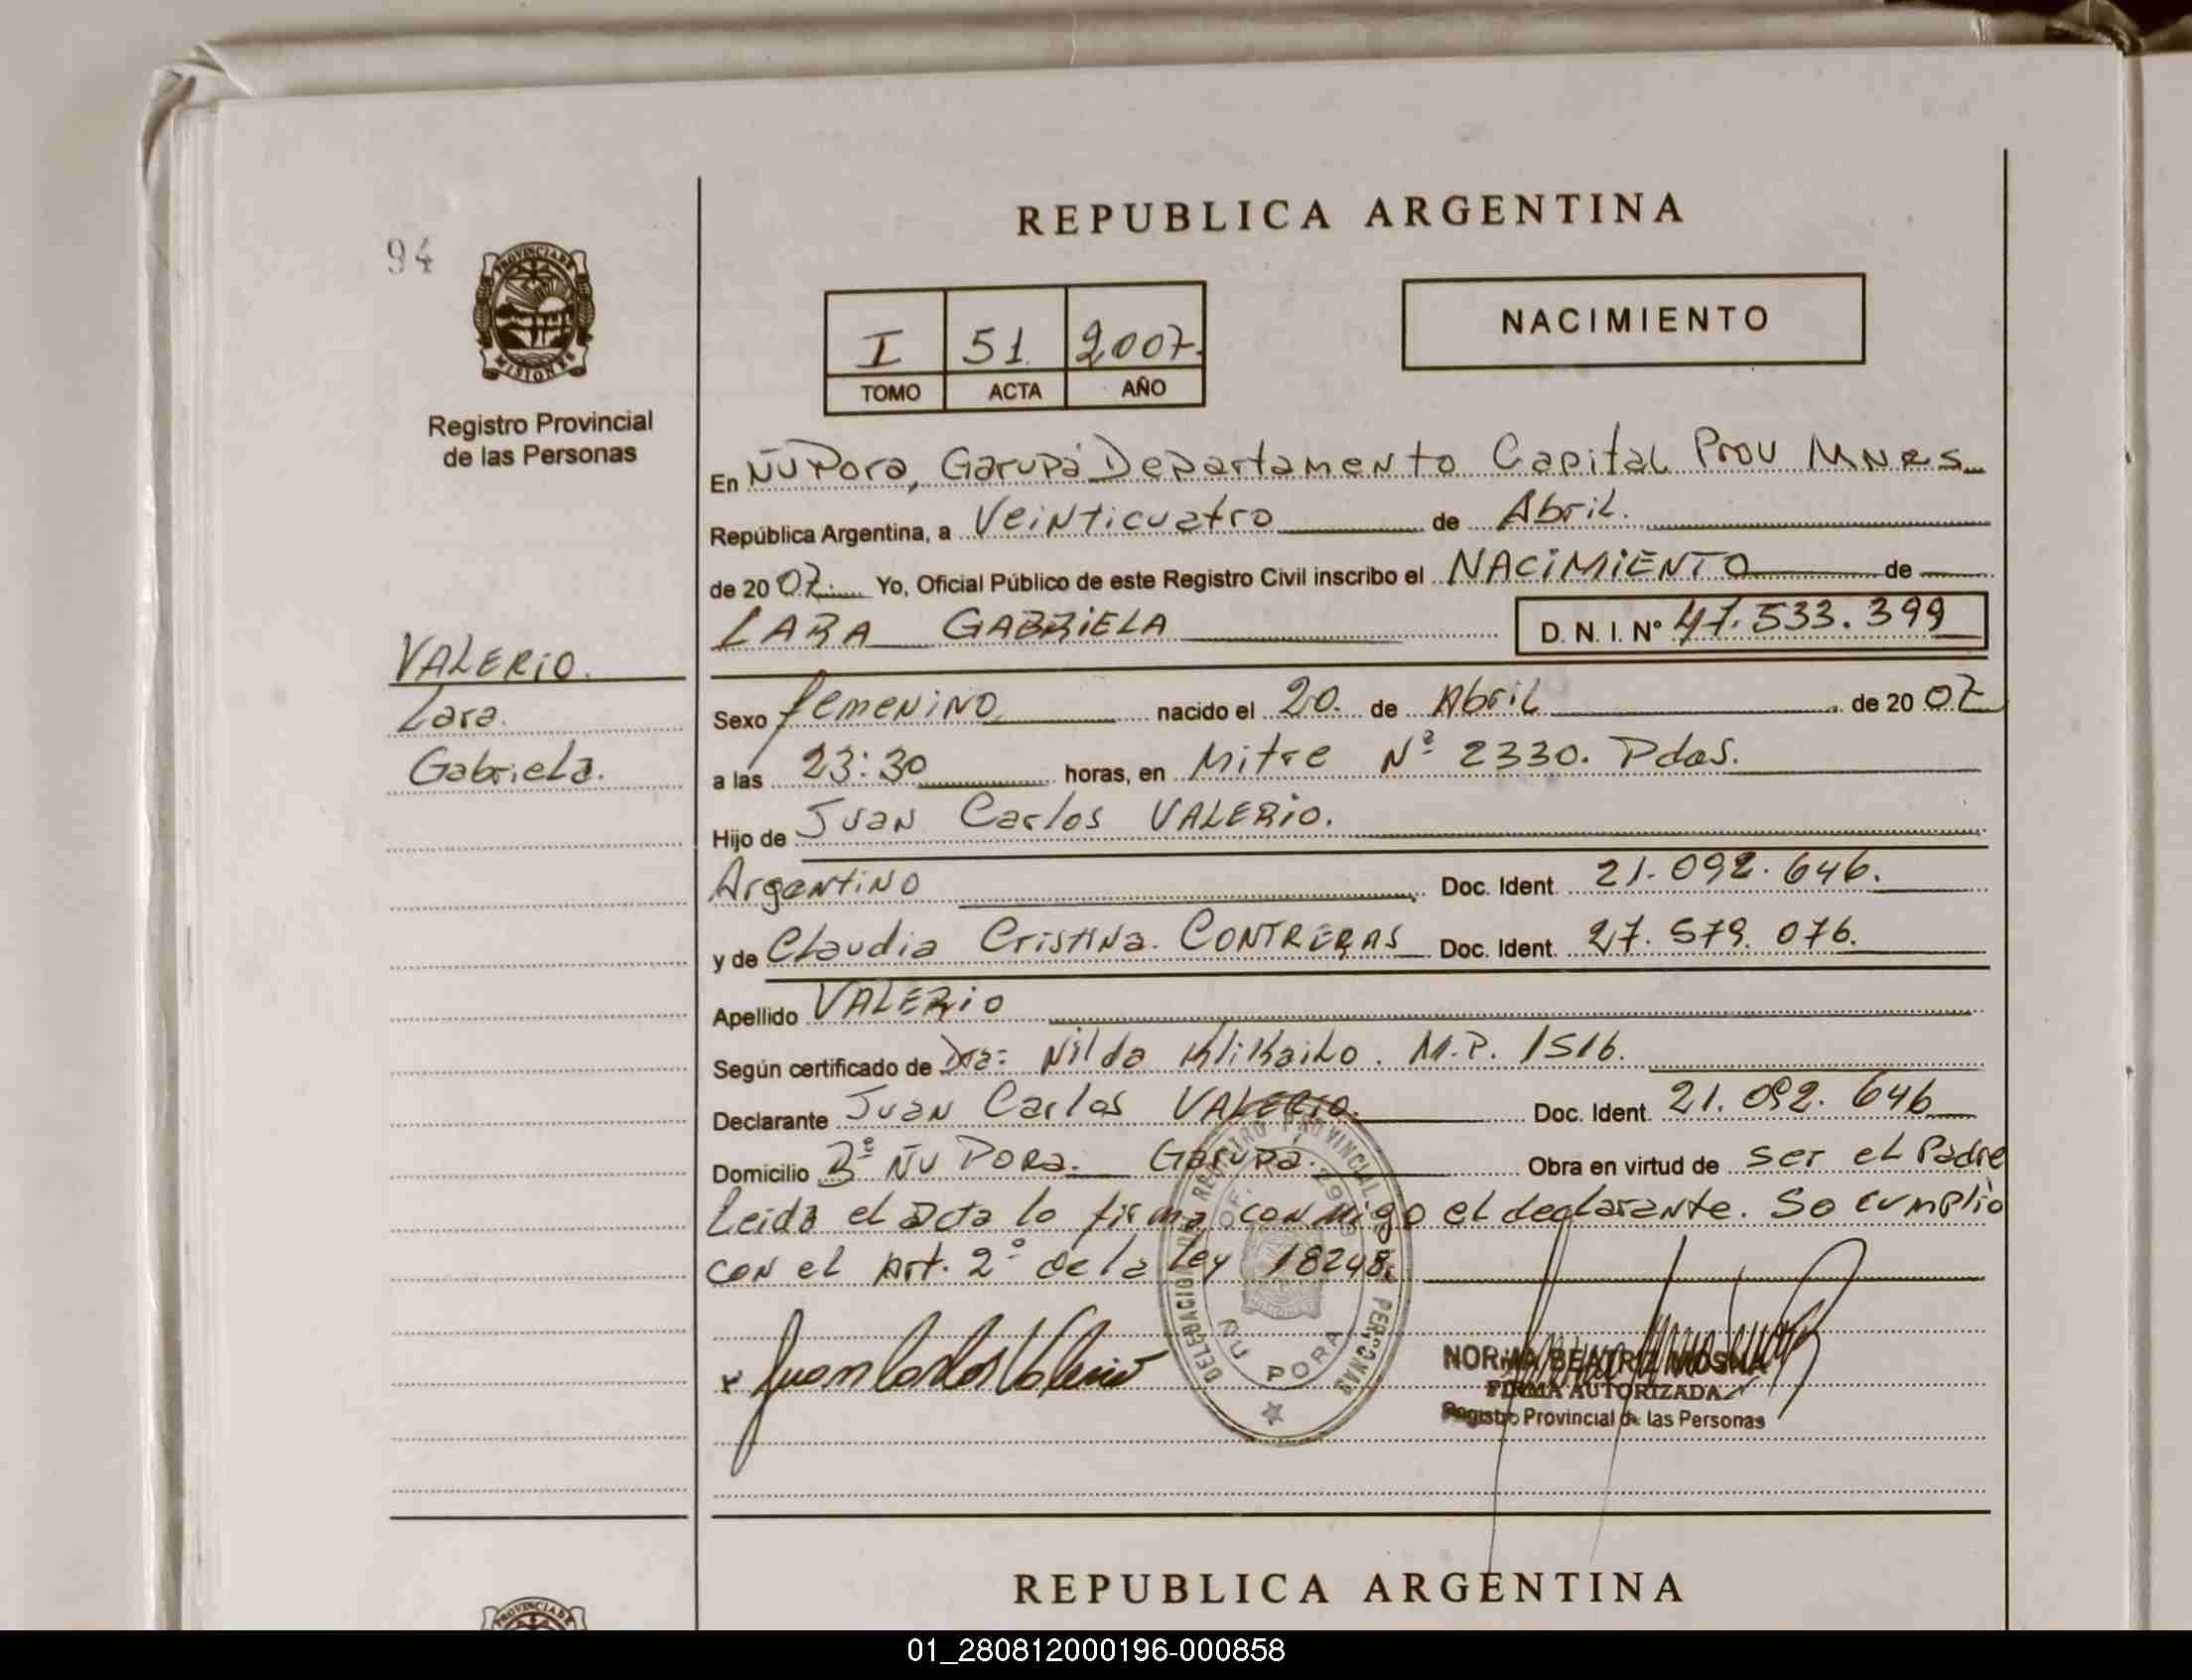 94
PROVINCIA DE
MISIONES
Registro Provincial
de las Personas
VALERIO.
Lara.
Gabriela.
REPUBLICA ARGENTINA
I 51. 2007.
TOMO ACTA AÑO
NACIMIENTO
En ÑU Pora, Garupá Departamento Capital Prov MNES
República Argentina, a Veinticuatro de Abril.
de 20 07. Yo, Oficial Público de este Registro Civil inscribo el NACIMIENTO de
LARA GABRIELA D. N. I. Nº 47.533.399
Sexo femenino nacido el 20. de Abril de 20 07
a las 23:30 horas, en Mitre Nº 2330. Pdas.
Hijo de Juan Carlos VALERIO.
Argentino Doc. Ident. 21.092.646.
y de Claudia Cristina. CONTRERAS Doc. Ident. 27.579.076.
Apellido VALERIO
Según certificado de Dra: Nilda M.P. 1516.
Declarante Juan Carlos VALERIO. Doc. Ident. 21.092.646
Domicilio Bº ÑU PORA. Garupá. Obra en virtud de ser el Padre
Leida el acta lo firma conmigo el declarante. Se cumplio
con el Art. 2º de la Ley 18248.
DELEGACION DE REGISTRO PROVINCIAL PERSONAS
ÑU PORA
x Juan Carlos Valerio
NORMA BEATRIZ
FIRMA AUTORIZADA
Registro Provincial de las Personas
REPUBLICA ARGENTINA
PROVINCIA DE
01_280812000196-000858